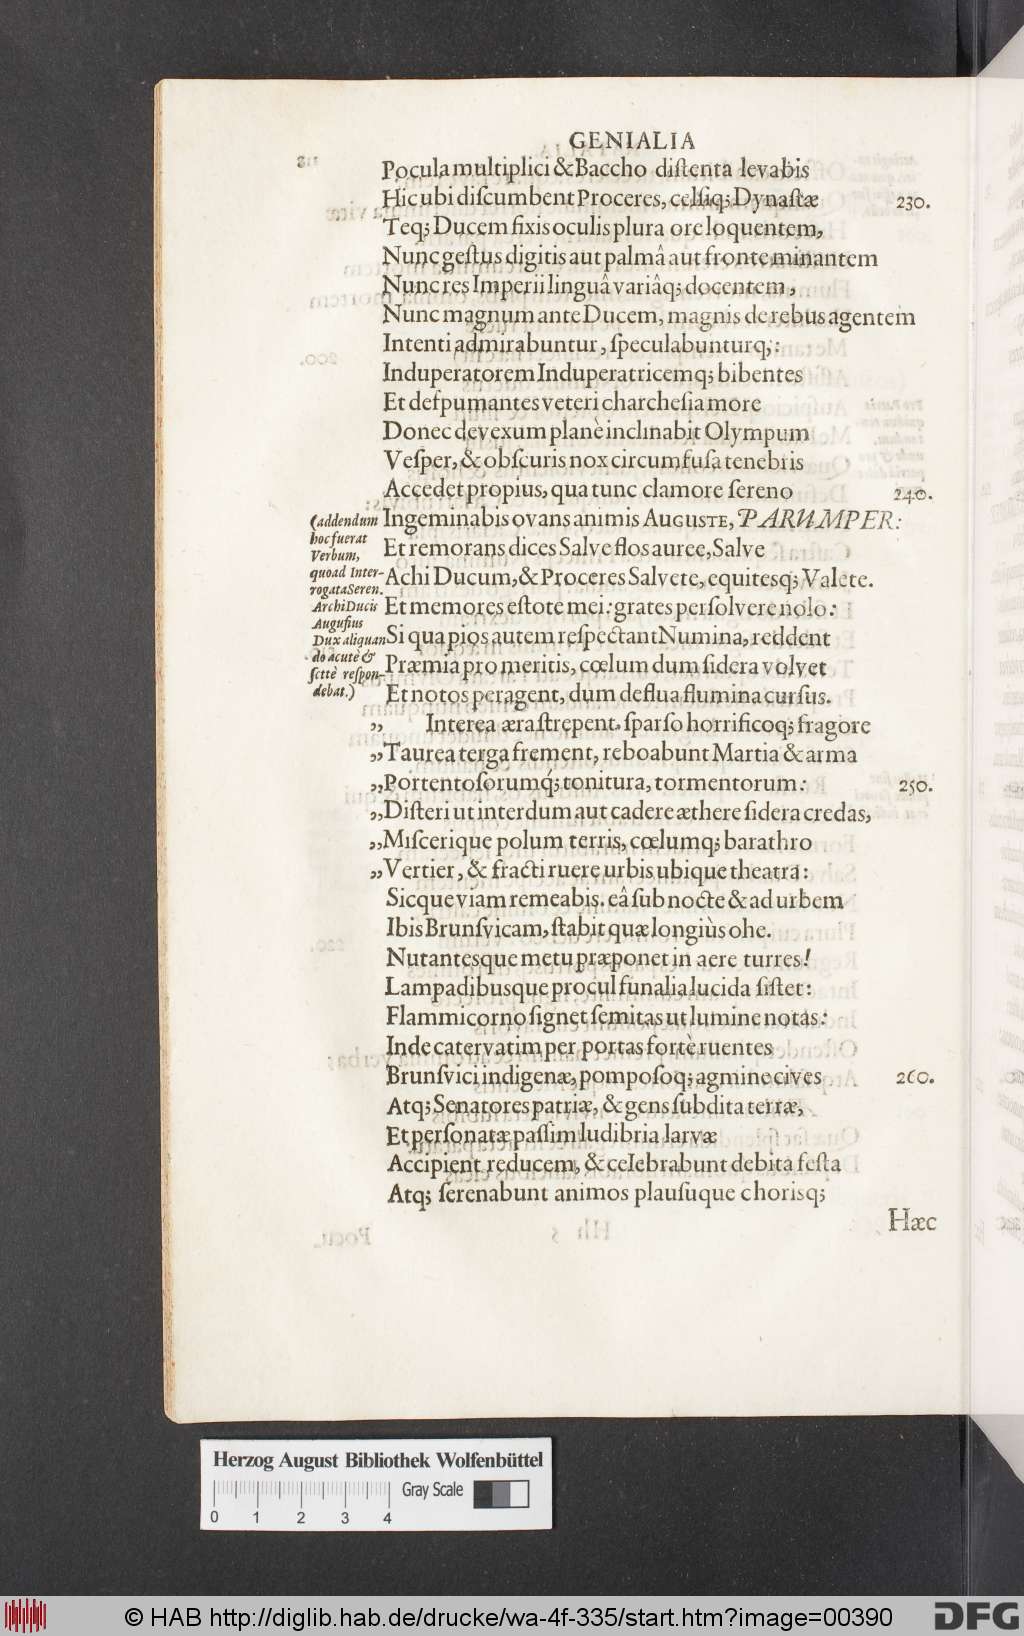 GENIALIA
Pocula multiplici & Baccho diſtenta levabis
Hic ubi diſcumbent Proceres, celſiq; Dynaſtæ 230.
Teq; Ducem fixis oculis plura ore loquentem,
Nunc geſtus digitis aut palmâ aut fronte minantem
Nunc res Imperii linguâ variâq; docentem,
Nunc magnum ante Ducem, magnis de rebus agentem
Intenti admirabuntur, ſpeculabunturq;:
Induperatorem Induperatricemq; bibentes
Et deſpumantes veteri charcheſia more
Donec devexum planè inclinabit Olympum
Veſper, & obſcuris nox circumfuſa tenebris
Accedet propius, qua tunc clamore ſereno 240.
Ingeminabis ovans animis AUGUSTE, PARUMPER:
Et remorans dices Salve flos auree, Salve
Achi Ducum, & Proceres Salvete, equitesq; Valete.
Et memores eſtote mei: grates perſolvere nolo:
Si qua pios autem reſpectant Numina, reddent
Præmia pro meritis, cœlum dum ſidera volvet
Et notos peragent, dum deflua flumina curſus.
(addendum
hoc fuerat
Verbum,
quoad Inter-
rogata Seren.
Archi Ducis
Auguſtus
Dux aliquan-
do acutè &
ſcitè reſpon-
debat.)
„ Interea æra ſtrepent. ſparſo horrificoq; fragore
„Taurea terga frement, reboabunt Martia & arma
„Portentoſorumq́; tonitura, tormentorum: 250.
„Diſteri ut interdum aut cadere æthere ſidera credas,
„Miſcerique polum terris, cœlumq; barathro
„Vertier, & fracti ruere urbis ubique theatra:
Sicque viam remeabis. eâ ſub nocte & ad urbem
Ibis Brunſvicam, ſtabit quæ longiùs ohe.
Nutantesque metu præponet in aere turres!
Lampadibusque procul funalia lucida ſiſtet:
Flammicorno ſignet ſemitas ut lumine notas:
Inde catervatim per portas fortè ruentes
Brunſvici indigenæ, pompoſoq; agmine cives 260.
Atq; Senatores patriæ, & gens ſubdita terræ,
Et perſonatæ paſſim ludibria larvæ
Accipient reducem, & celebrabunt debita feſta
Atq; ſerenabunt animos plauſuque chorisq;
Hæc
Herzog August Bibliothek Wolfenbüttel
Gray Scale
0 1 2 3 4
© HAB http://diglib.hab.de/drucke/wa-4f-335/start.htm?image=00390
DFG